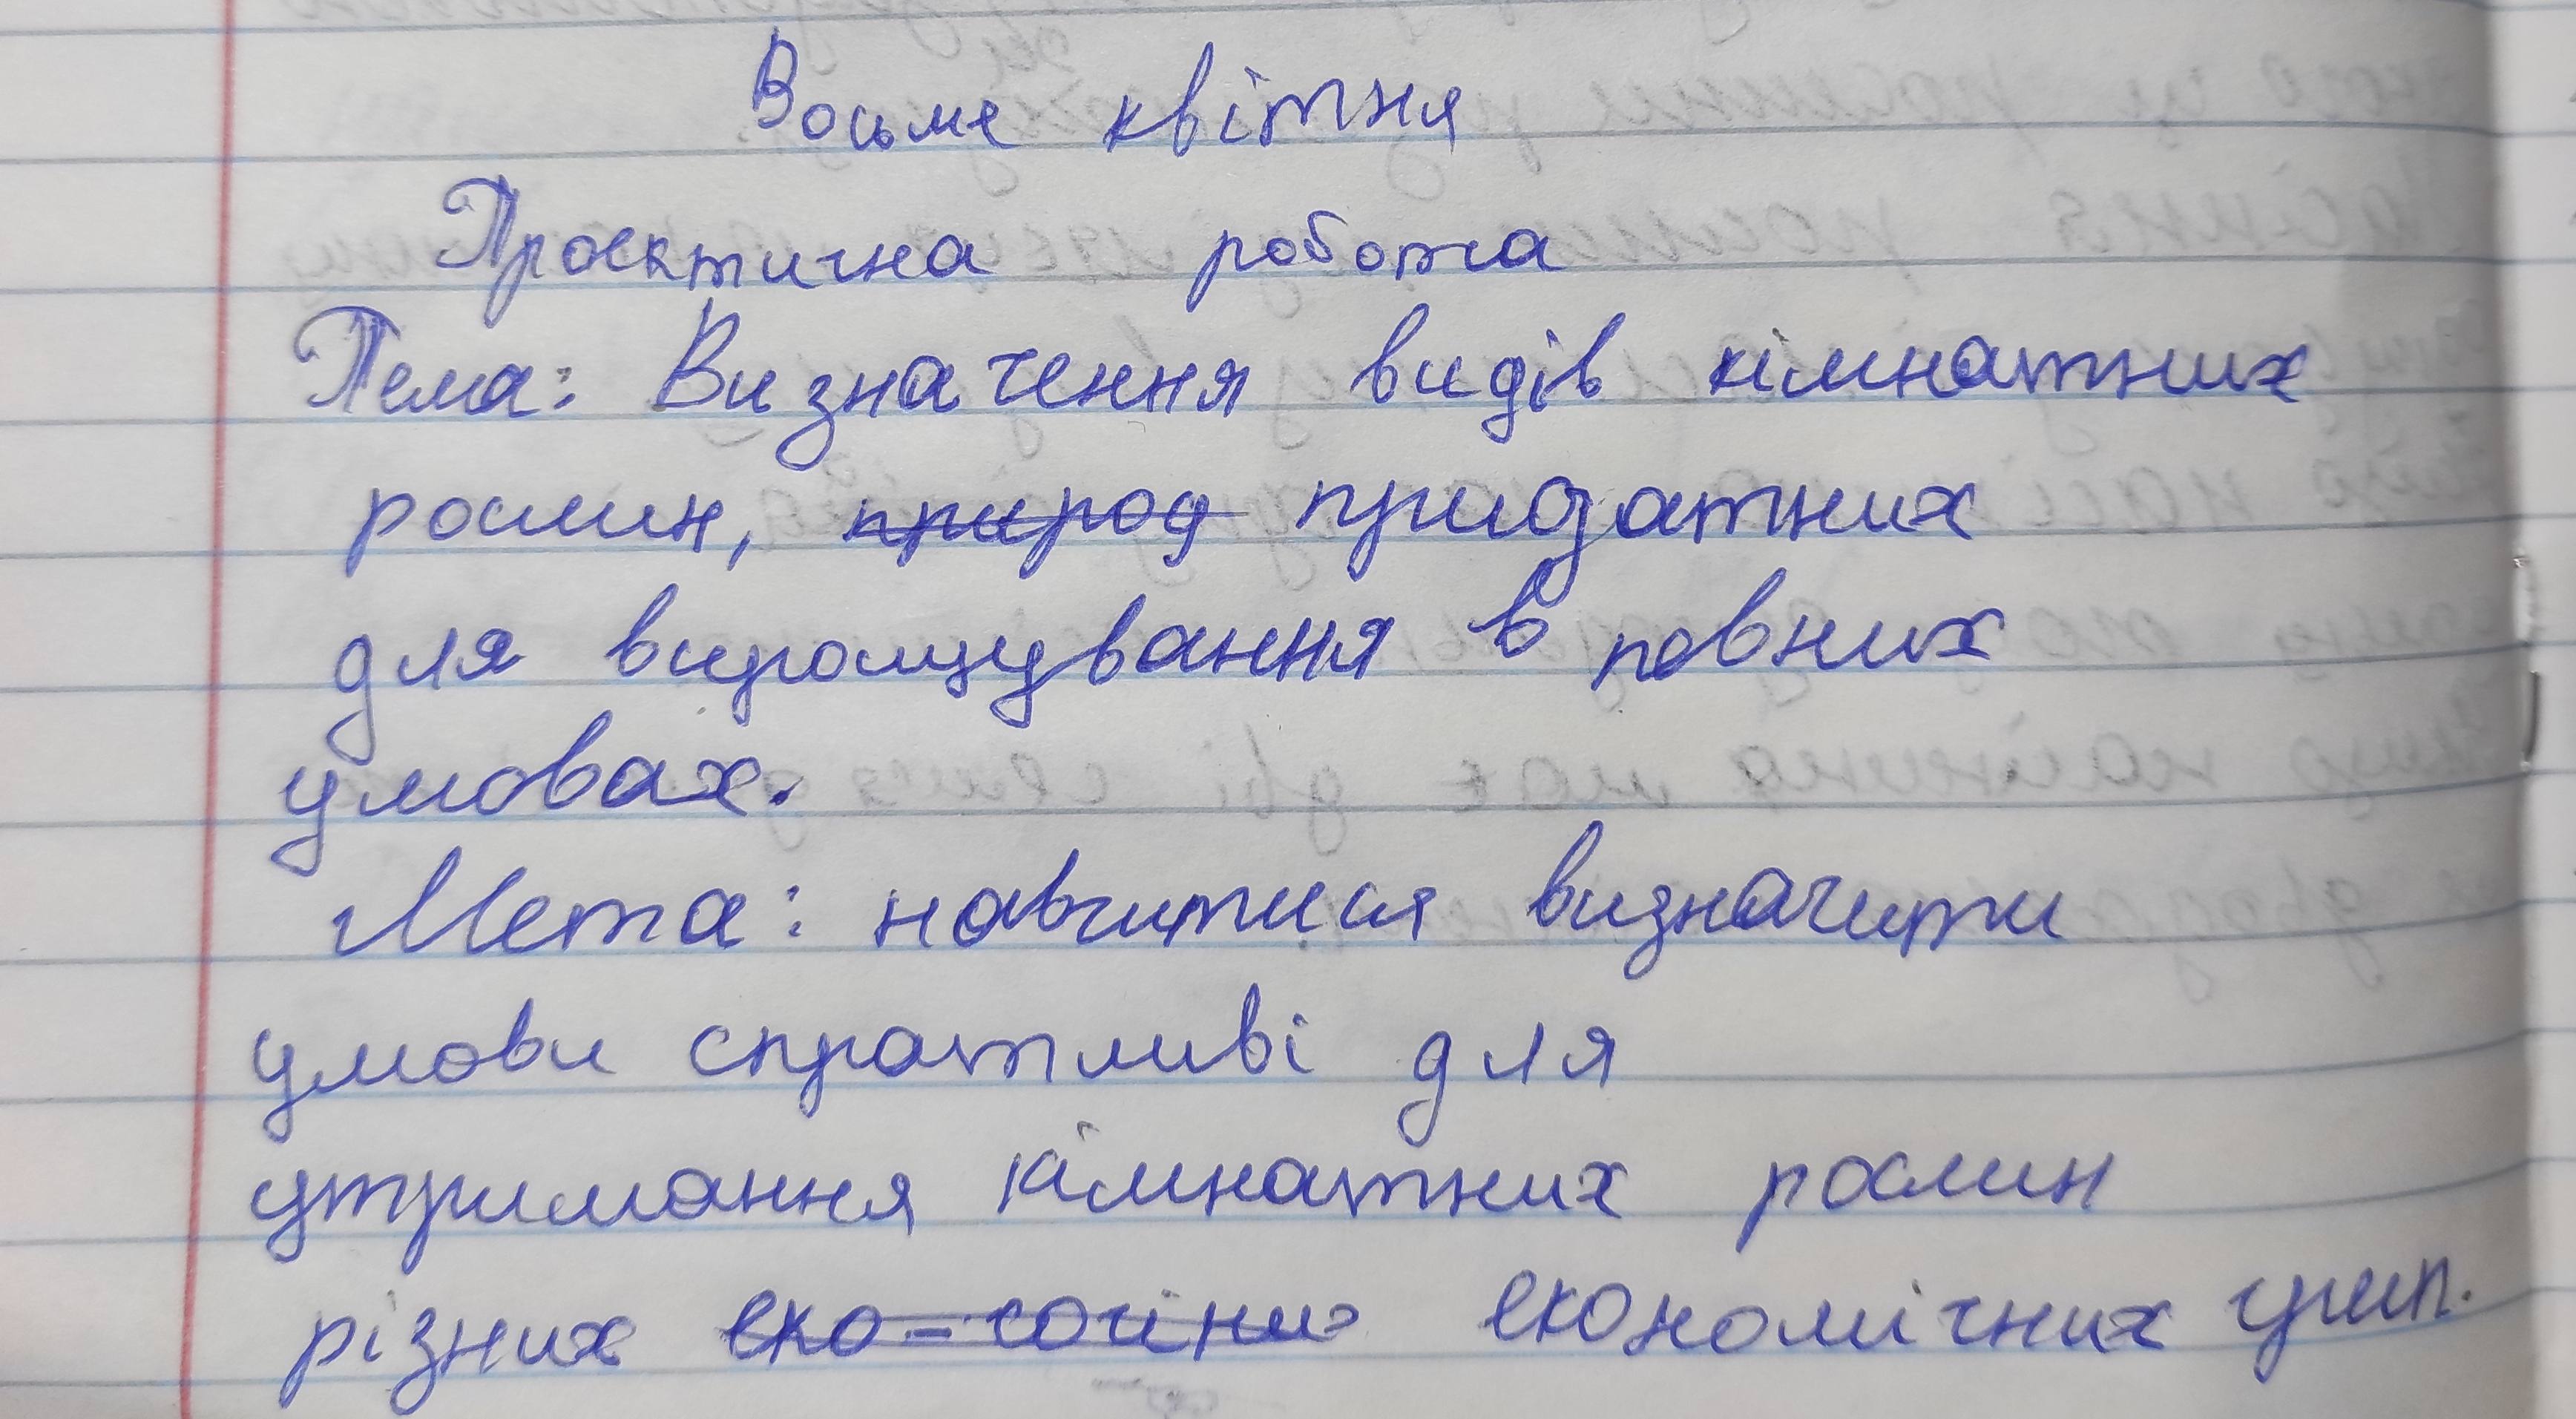 Восьме квітня
Проєктична робота
Тема: Визначення видів кімнатних
рослин, природ придатних
для вирощування в повних
умовах.
Мета: навчитися визначити
умови спратливі для
утримання кімнатних рослин
різних еко- економічних груп.